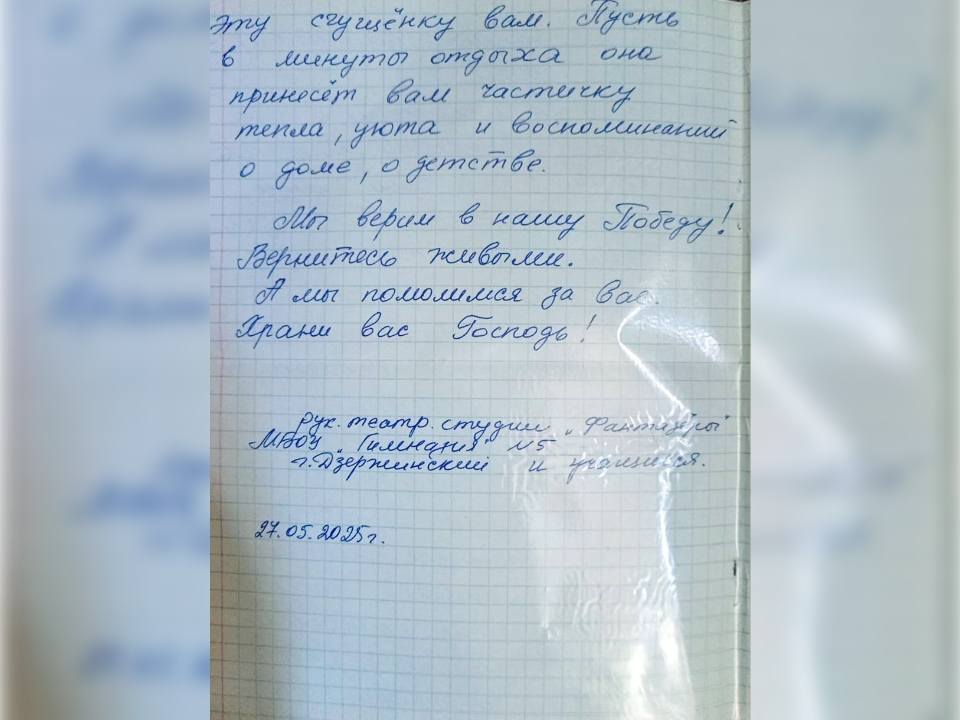 эту сгущёнку вам. Пусть
в минуты отдыха она
принесёт вам частичку
тепла, уюта и воспоминаний
о доме, о детстве.
Мы верим в нашу Победу!
Вернитесь живыми.
А мы помолимся за вас.
Храни вас Господь!
рук. театр. студии „Фантазёры"
МБОУ „Гимназия" №5
г. Дзержинский и учащиеся.
27.05.2025г.